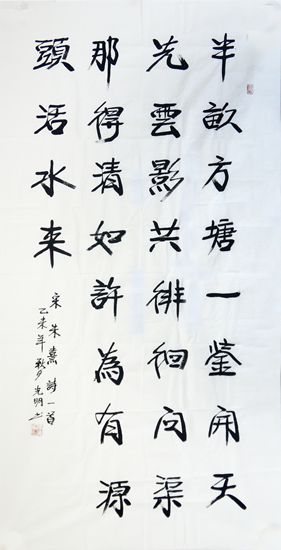 半畝方塘一鑒開天
光雲影共徘徊問渠
那得清如許為有源
頭活水来
宋朱熹詩一首
乙未年秋光明书